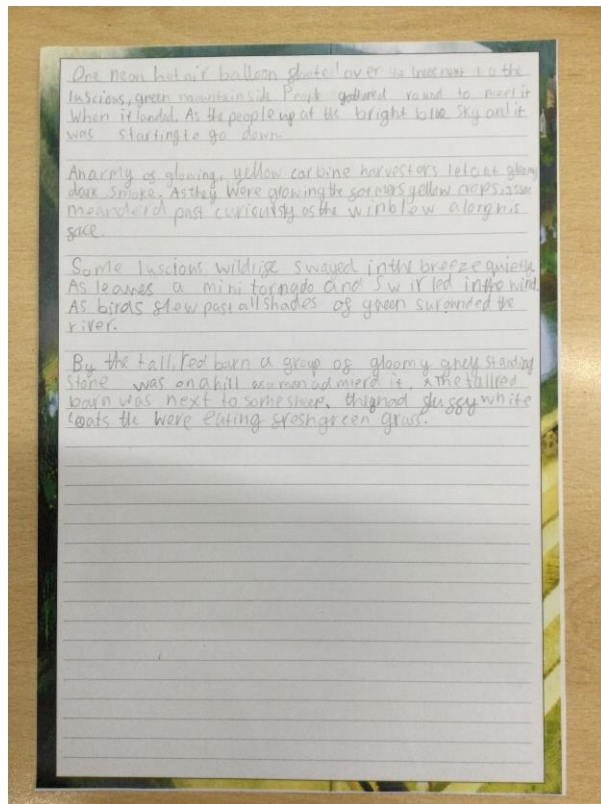 One neon hot air balloon gloated over the trees next to the
luscious, green mountainside People gathered round to meet it
when it landed. As the people up at the bright blue sky and it
was starting to go down.
An army of glowing, yellow conbine harvestors let out gloomy
dark smoke, As they were glowing the garmers yellow crops
meanderd past curiously as the win blow along his
gace.
Some luscious, wildlige swayed in the breeze quietly.
As leaves a mini torngdo and swirled in the wind.
As birds glew past all shades of green surounded the
river.
By the tall, red barn a group of gloomy standing
stone was on a hill as a man admierd it. The tall red
barn was next to some steep, had gluggy white
coats the were eating greshgreen grass.